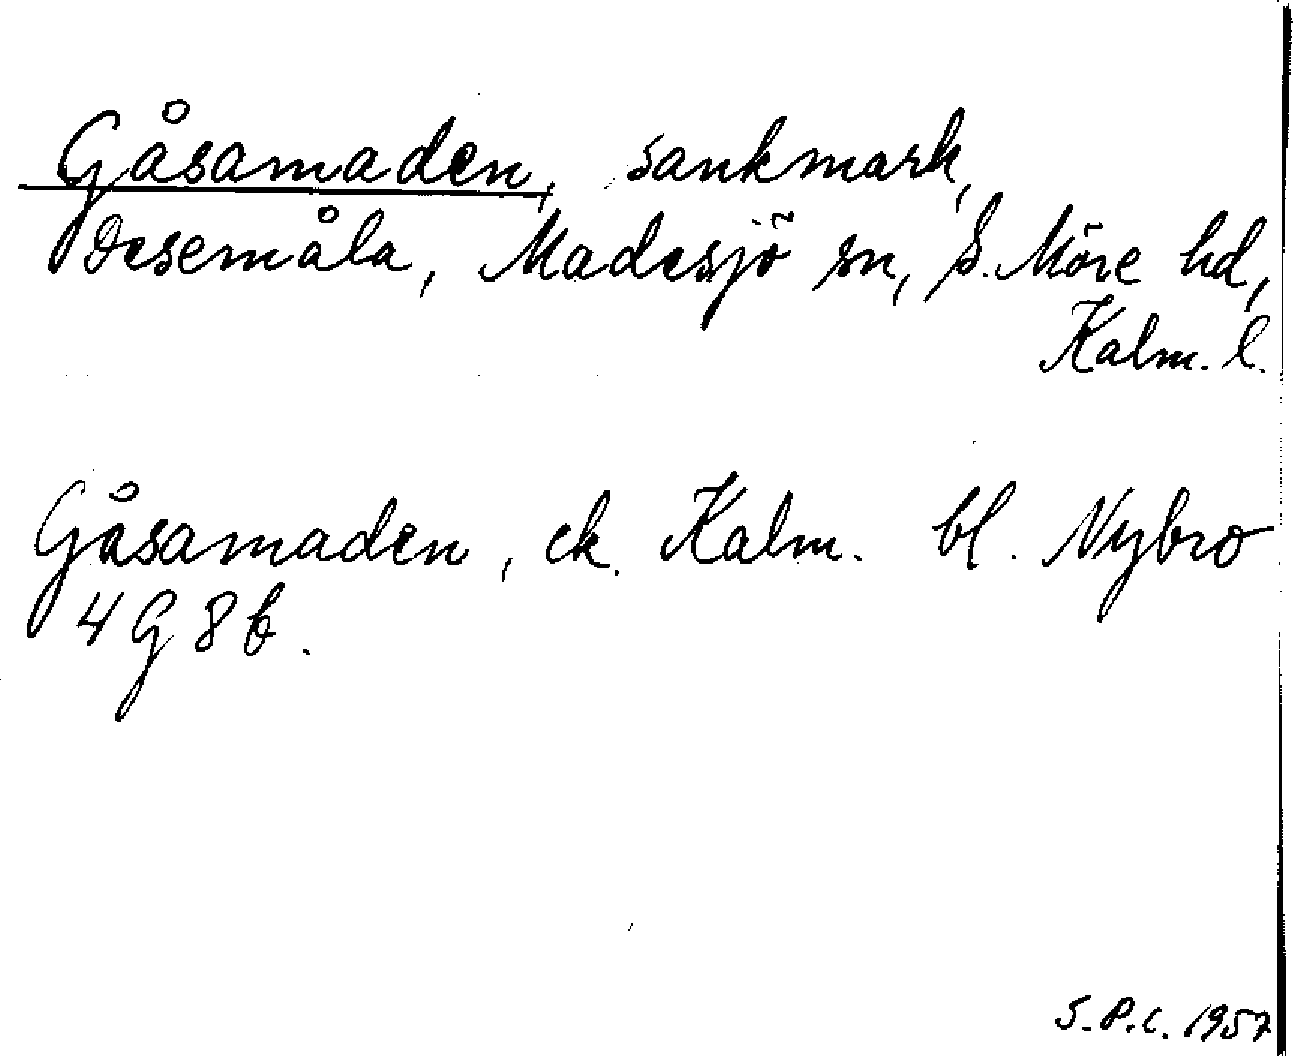 Gåsamaden, sankmark,
Desemåla, Madesjö sn, S. Möre hd,
Kalm. l.
Gåsamaden, ek. Kalm. bl. Nybro
4 G 8 b.
S.P.C. 1957